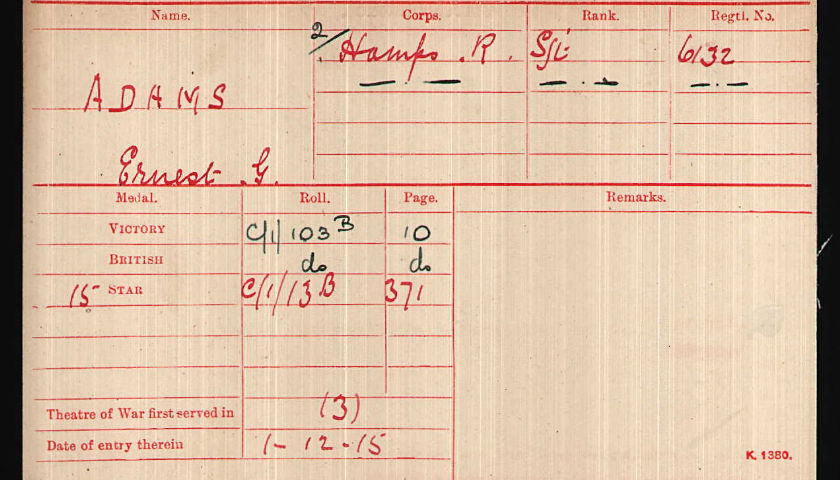 Name. Corps. Rank. Regtl. No.
2/ Hamps. R. Sjt 6132
ADAMS
Ernest G.
Medal. Roll. Page. Remarks.
VICTORY C/1/103 B 10
BRITISH do do
15 STAR C/1/13 B 371
Theatre of War first served in (3)
Date of entry therein 1-12-15
K. 1380.